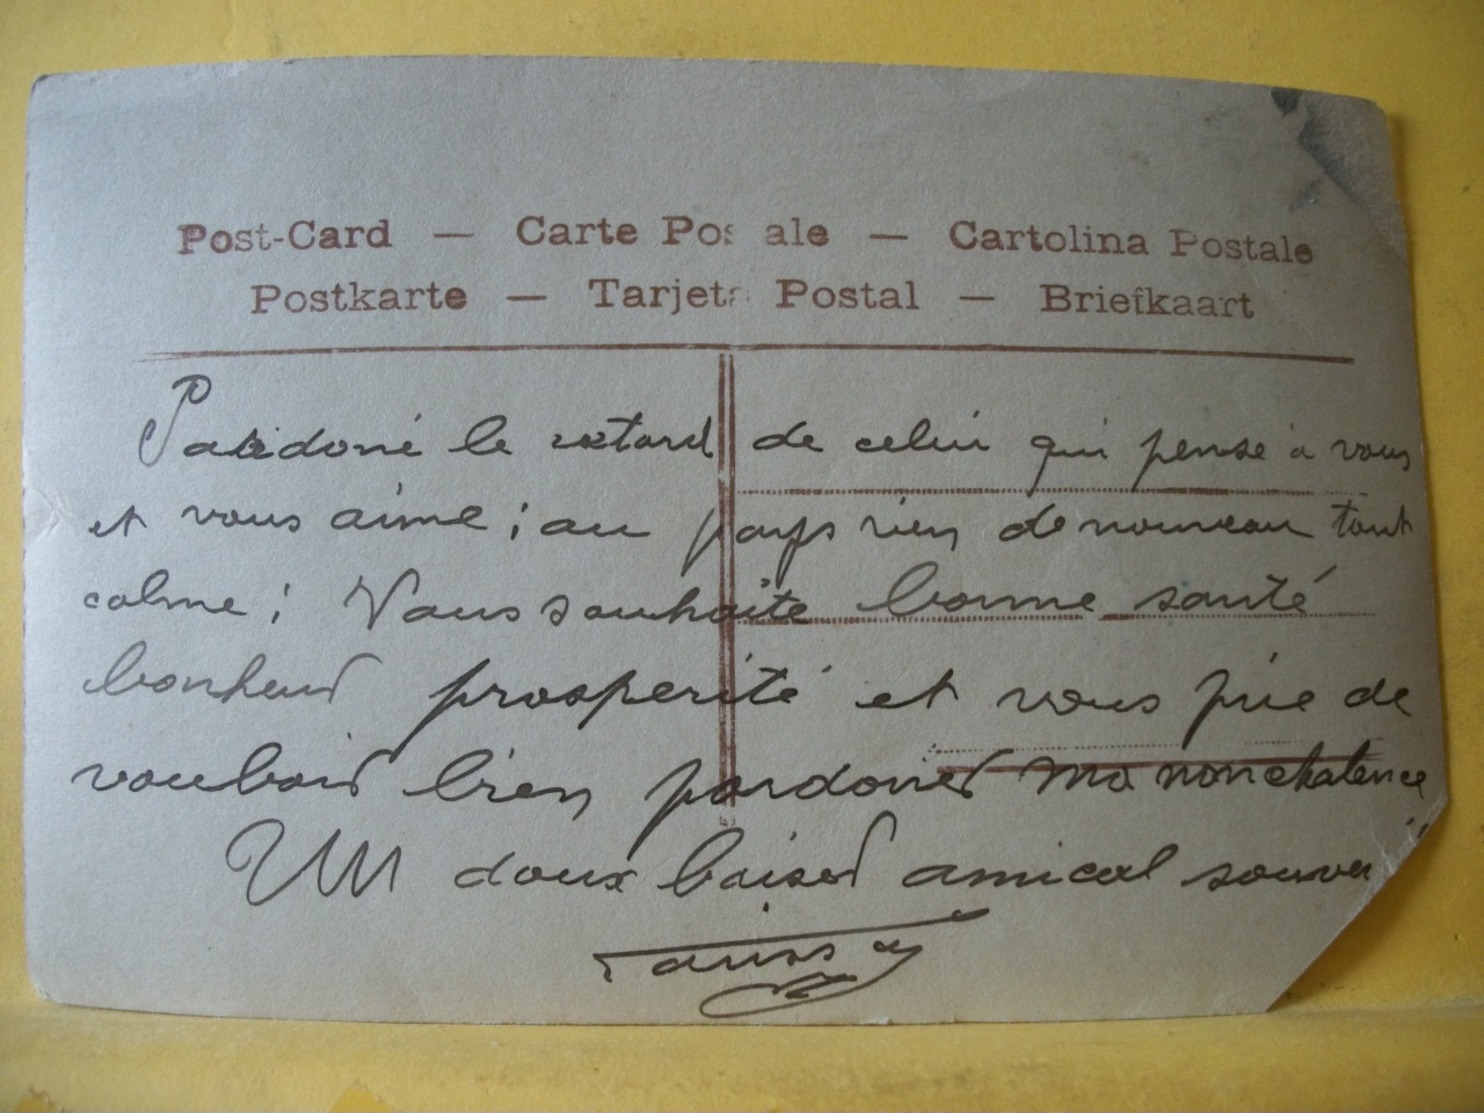 Post-Card — Carte Pos ale — Cartolina Postale
Postkarte — Tarjeta Postal — Briefkaart
Pardoné le retard de celui qui pense à vous
et vous aime ; au pays rien de nouveau tout
calme ; Vous souhaite bonne santé
bonheur prosperité et vous prie de
vouloir bien pardoner ma nonchalence
Un doux baiser amical souve